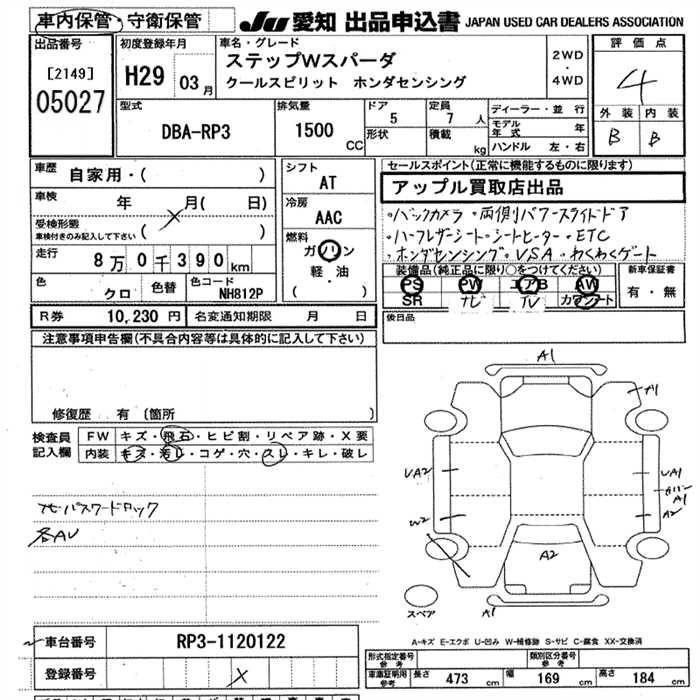 車内保管・守衛保管
JU 愛知 出品申込書 JAPAN USED CAR DEALERS ASSOCIATION
出品番号
[2149]
05027
初度登録年月
H29 03月
車名・グレード
ステップWスパーダ
クールスピリット ホンダセンシング
2WD
・
4WD
評価点
4
外装 内装
B B
型式
DBA-RP3
排気量
1500 CC
ドア
5
形状
定員
7 人
積載
kg
ディーラー・並行
モデル年式 年
ハンドル 左・右
車歴
自家用・( )
車検 年 月( 日)
受検形態
車検付きのみ記入して下さい ( )
X
走行 8万0千390km
色 クロ 色替 色コード NH812P
シフト
AT
冷房
AAC
燃料
ガソリン
軽・油
( )
R券 10,230円 名変通知期限 月 日
セールスポイント(正常に機能するものに限ります)
アップル買取店出品
・バックカメラ・両側パワースライドドア
・ハーフレザーシート・シートヒーター・ETC
・ホンダセンシング・VSA・わくわくゲート
装備品(純正品に限り○をつけてください)
PS PW エアB AW
SR ナビ TV カワシート
新車保証書
有・無
後日品
注意事項申告欄(不具合内容等は具体的に記入して下さい)
修復歴 有 〔箇所 〕
検査員記入欄
FW キズ・飛石・ヒビ割・リペア跡・X要
内装 キズ・汚レ・コゲ・穴・スレ・キレ・破レ
ナビパスワードロック
各AU
A1
A1
UA2
W2
UA1
カバーA1
A2
A2
A1
スペア
A-キズ E-エクボ U-凹み W-補修跡 S-サビ C-腐食 XX-交換済
車台番号 RP3-1120122
登録番号 X
形式指定番号
参考
類別区分番号
参考
車庫証明用
参考
長さ 473 cm 幅 169 cm 高さ 184 cm